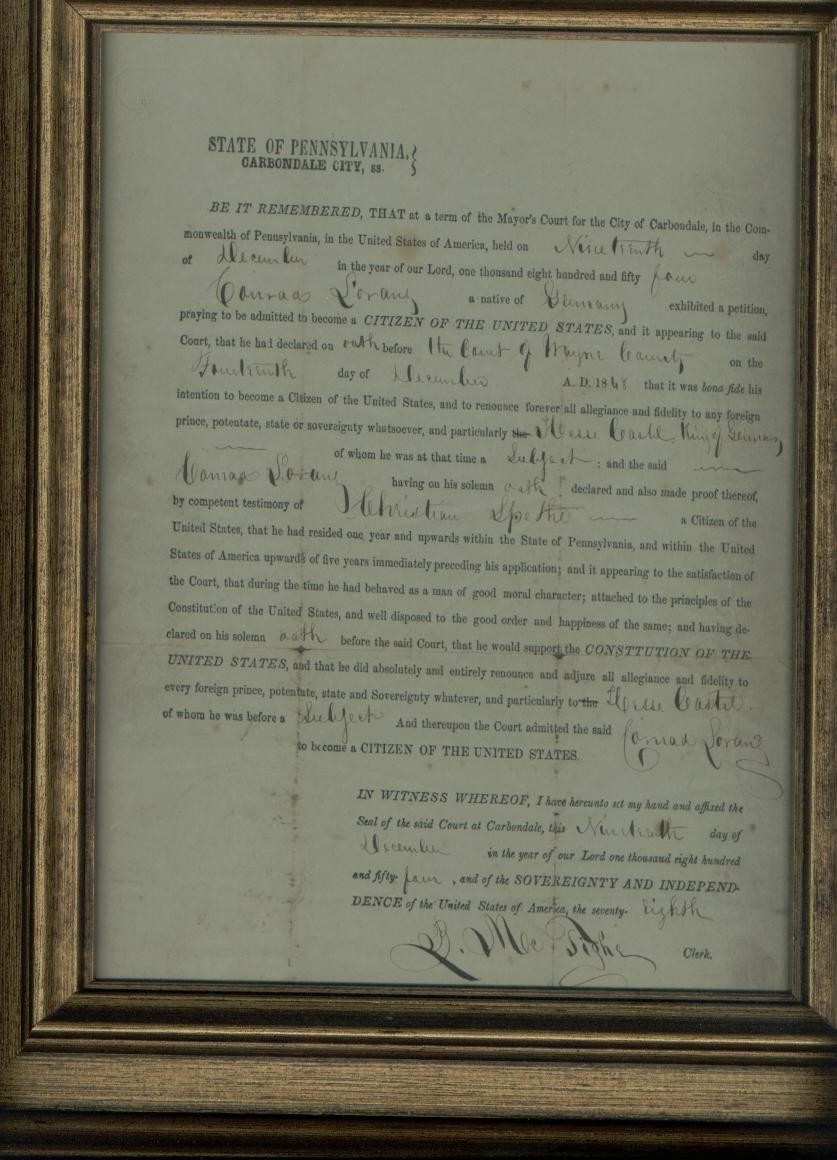 STATE OF PENNSYLVANIA,
CARBONDALE CITY, ss.
BE IT REMEMBERED, THAT at a term of the Mayor's Court for the City of Carbondale, in the Com-
monwealth of Pennsylvania, in the United States of America, held on Nineteenth day
of December in the year of our Lord, one thousand eight hundred and fifty four
Conrad Lorang a native of Germany exhibited a petition,
praying to be admitted to become a CITIZEN OF THE UNITED STATES, and it appearing to the said
Court, that he had declared on oath before the Court of Wayne County on the
Fourteenth day of December A. D. 1848 that it was bona fide his
intention to become a Citizen of the United States, and to renounce forever all allegiance and fidelity to any foreign
prince, potentate, state or sovereignty whatsoever, and particularly the Hesse Castel King of Germany
of whom he was at that time a Subject : and the said
Conrad Lorang having on his solemn oath declared and also made proof thereof,
by competent testimony of Christian a Citizen of the
United States, that he had resided one year and upwards within the State of Pennsylvania, and within the United
States of America upwards of five years immediately preceding his application; and it appearing to the satisfaction of
the Court, that during the time he had behaved as a man of good moral character; attached to the principles of the
Constitution of the United States, and well disposed to the good order and happiness of the same; and having de-
clared on his solemn oath before the said Court, that he would support the CONSTTUTION OF THE
UNITED STATES, and that he did absolutely and entirely renounce and adjure all allegiance and fidelity to
every foreign prince, potentate, state and Sovereignty whatever, and particularly to the Hesse Castel.
of whom he was before a Subject And thereupon the Court admitted the said Conrad Lorang
to become a CITIZEN OF THE UNITED STATES.
IN WITNESS WHEREOF, I have hereunto set my hand and affixed the
Seal of the said Court at Carbondale, this Nineteenth day of
December in the year of our Lord one thousand eight hundred
and fifty- four , and of the SOVEREIGNTY AND INDEPEND-
DENCE of the United States of America, the seventy- eighth
Clerk.